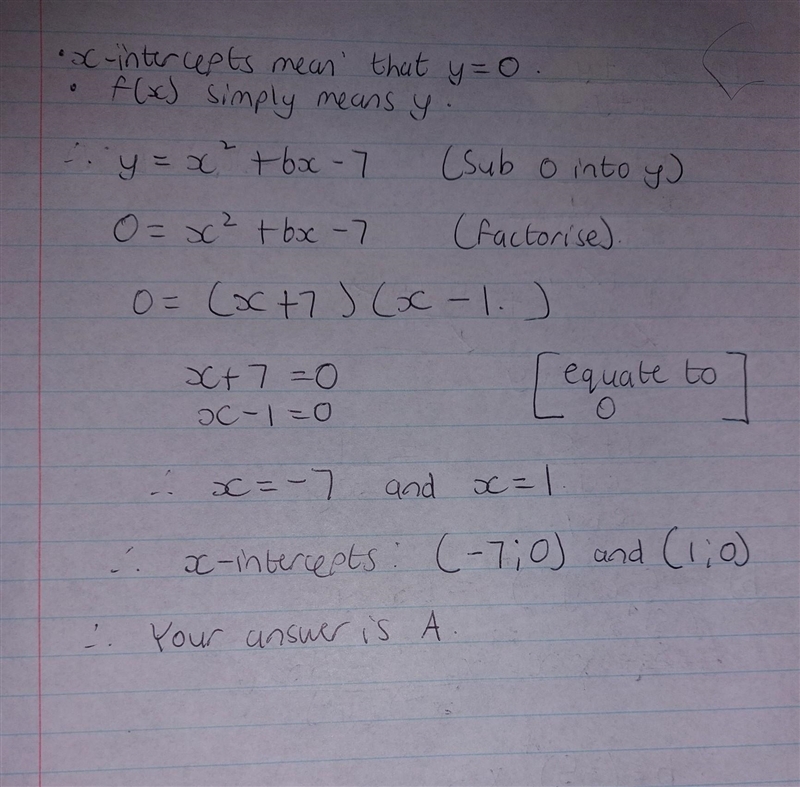 · x-intercepts mean that y = 0.
· f(x) simply means y.
∴ y = x² + 6x - 7 (Sub 0 into y)
0 = x² + 6x - 7 (factorise).
0 = (x+7)(x - 1.)
x+7 = 0 [equate to
x-1 = 0 0]
∴ x = -7 and x = 1.
∴ x-intercepts: (-7;0) and (1;0)
∴ Your answer is A.